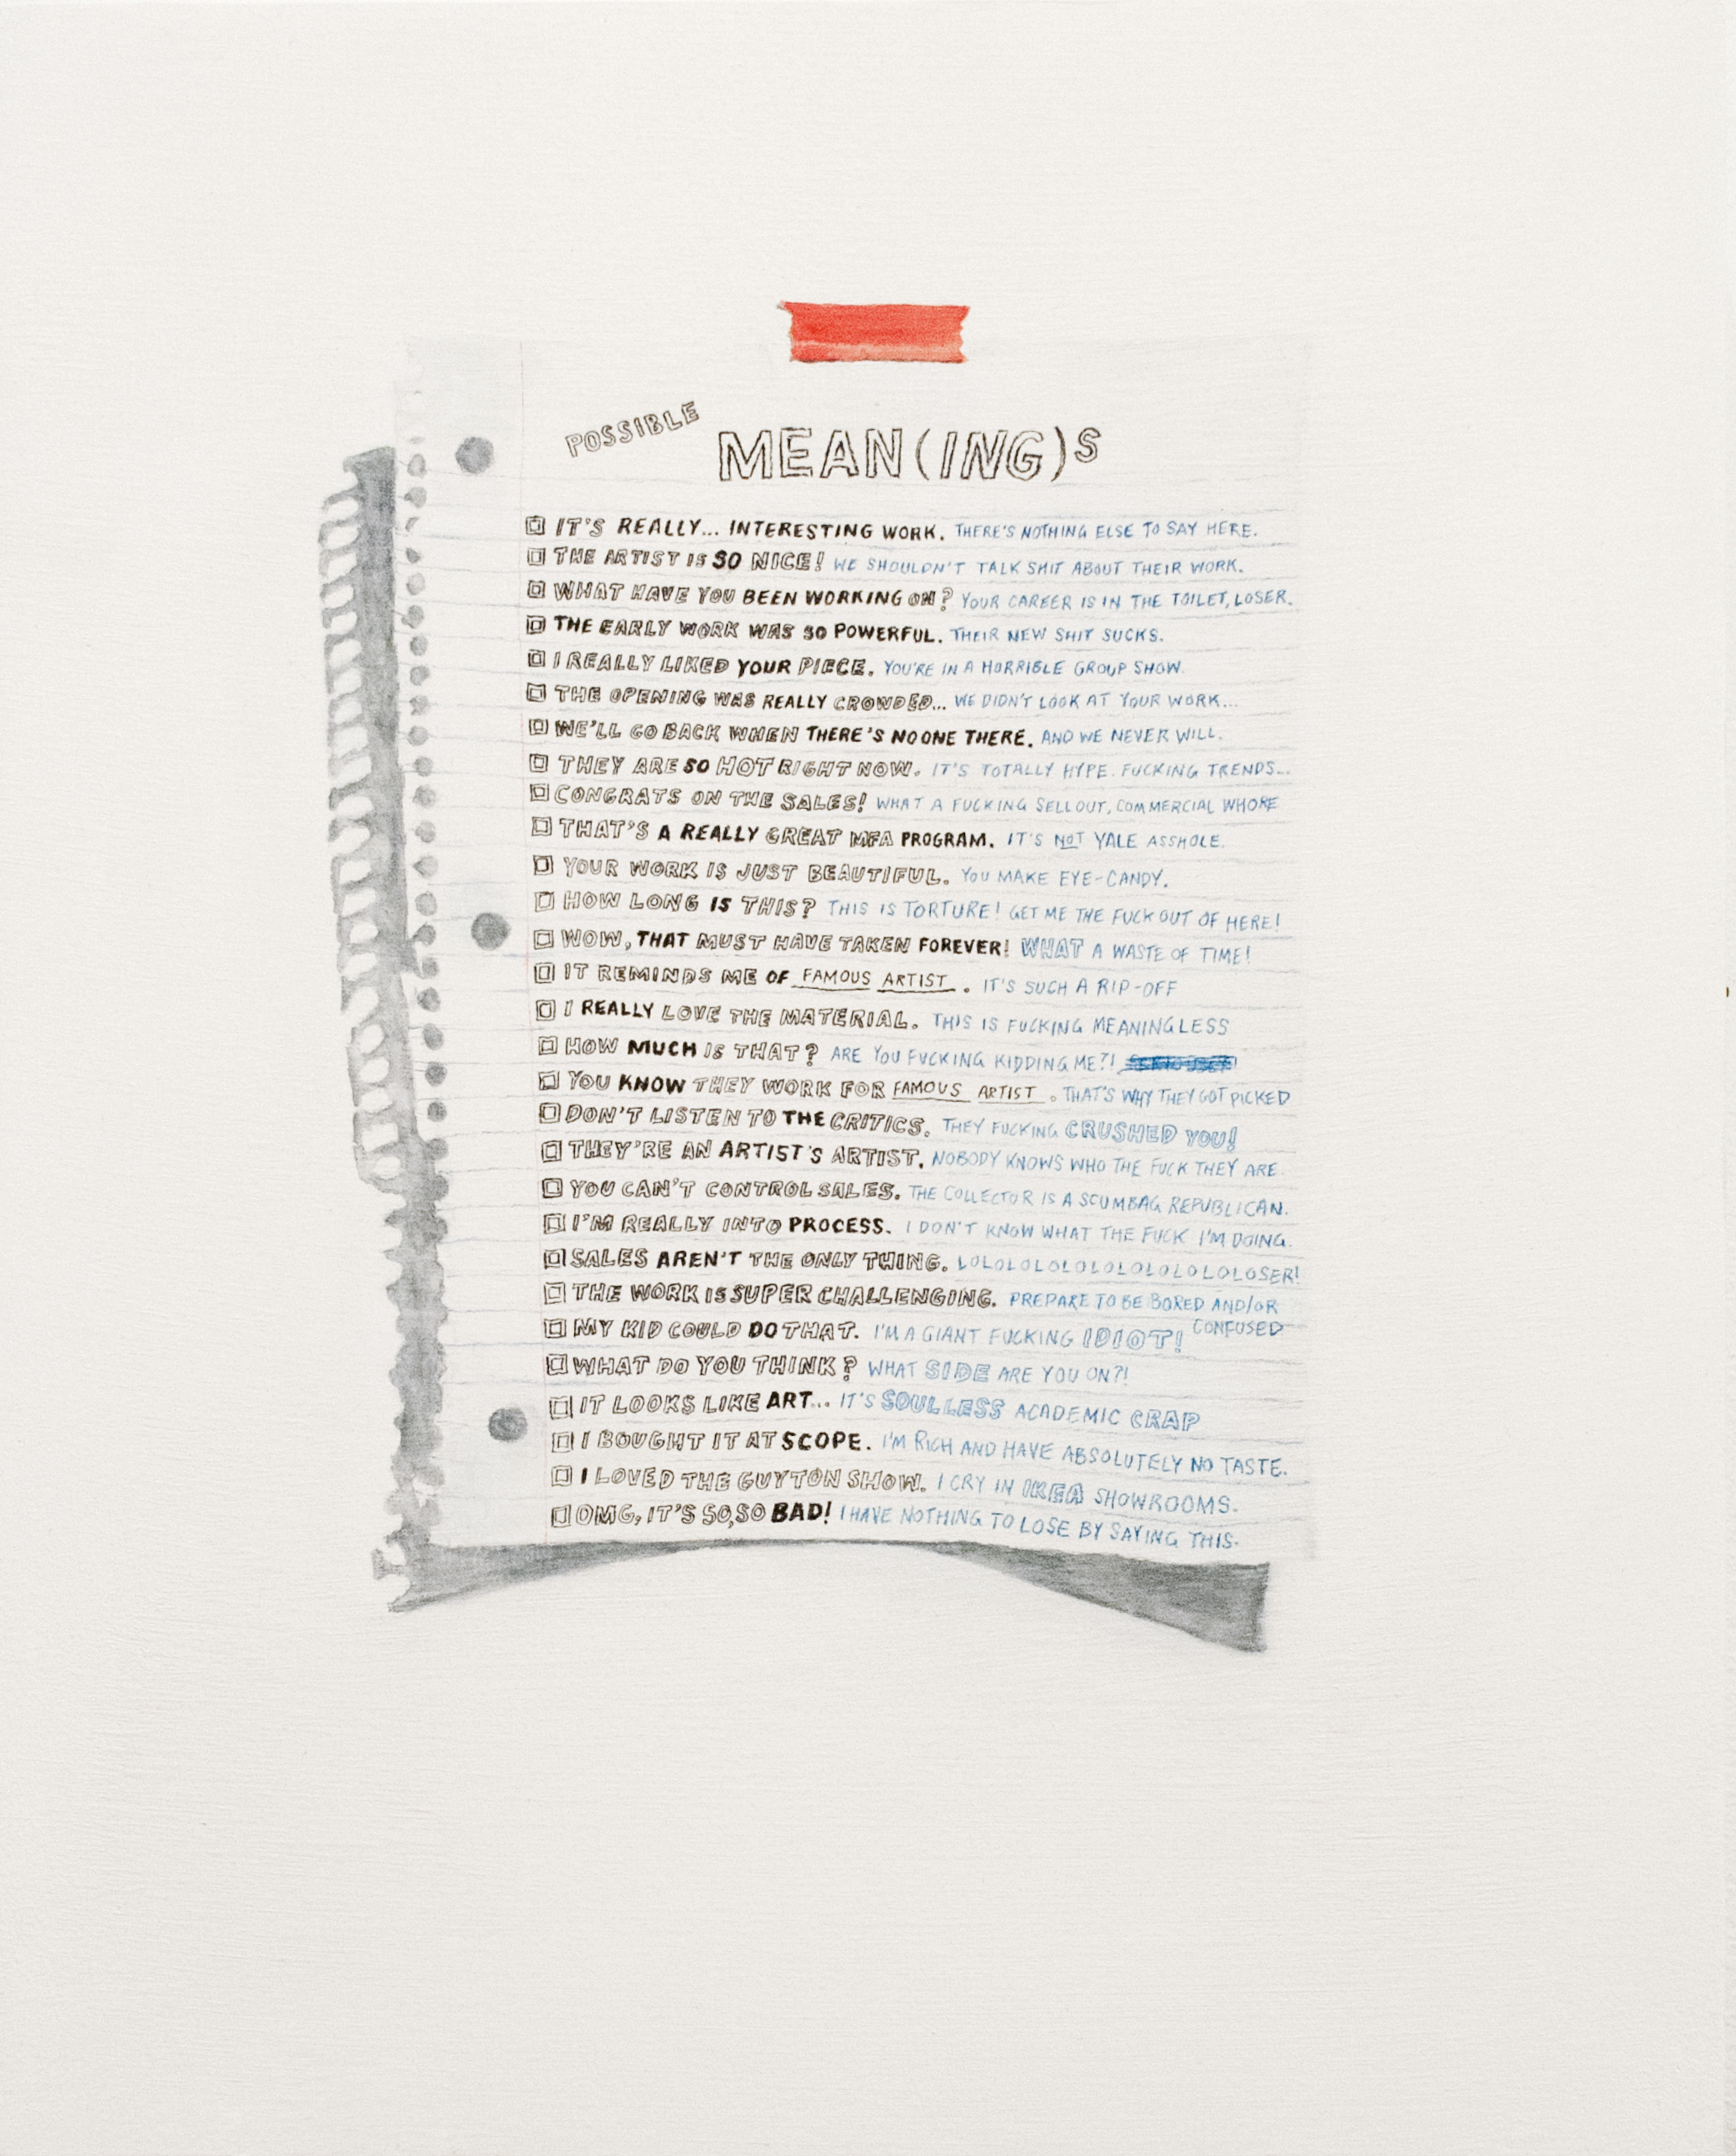 POSSIBLE MEAN(ING)S
IT'S REALLY... INTERESTING WORK. THERE'S NOTHING ELSE TO SAY HERE.
THE ARTIST IS SO NICE! WE SHOULDN'T TALK SHIT ABOUT THEIR WORK.
WHAT HAVE YOU BEEN WORKING ON? YOUR CAREER IS IN THE TOILET, LOSER.
THE EARLY WORK WAS SO POWERFUL. THEIR NEW SHIT SUCKS.
I REALLY LIKED YOUR PIECE. YOU'RE IN A HORRIBLE GROUP SHOW.
THE OPENING WAS REALLY CROWDED... WE DIDN'T LOOK AT YOUR WORK...
WE'LL GO BACK WHEN THERE'S NO ONE THERE. AND WE NEVER WILL.
THEY ARE SO HOT RIGHT NOW. IT'S TOTALLY HYPE. FUCKING TRENDS...
CONGRATS ON THE SALES! WHAT A FUCKING SELLOUT, COMMERCIAL WHORE
THAT'S A REALLY GREAT MFA PROGRAM. IT'S NOT YALE ASSHOLE.
YOUR WORK IS JUST BEAUTIFUL. YOU MAKE EYE-CANDY.
HOW LONG IS THIS? THIS IS TORTURE! GET ME THE FUCK OUT OF HERE!
WOW, THAT MUST HAVE TAKEN FOREVER! WHAT A WASTE OF TIME!
IT REMINDS ME OF FAMOUS ARTIST. IT'S SUCH A RIP-OFF
I REALLY LOVE THE MATERIAL. THIS IS FUCKING MEANINGLESS
HOW MUCH IS THAT? ARE YOU FUCKING KIDDING ME?!
YOU KNOW THEY WORK FOR FAMOUS ARTIST. THAT'S WHY THEY GOT PICKED
DON'T LISTEN TO THE CRITICS. THEY FUCKING CRUSHED YOU!
THEY'RE AN ARTIST'S ARTIST. NOBODY KNOWS WHO THE FUCK THEY ARE.
YOU CAN'T CONTROL SALES. THE COLLECTOR IS A SCUMBAG REPUBLICAN.
I'M REALLY INTO PROCESS. I DON'T KNOW WHAT THE FUCK I'M DOING.
SALES AREN'T THE ONLY THING. LOLOLOLOLOLOLOLOLOLOLOSER!
THE WORK IS SUPER CHALLENGING. PREPARE TO BE BORED AND/OR CONFUSED
MY KID COULD DO THAT. I'M A GIANT FUCKING IDIOT!
WHAT DO YOU THINK? WHAT SIDE ARE YOU ON?!
IT LOOKS LIKE ART... IT'S SOULLESS ACADEMIC CRAP
I BOUGHT IT AT SCOPE. I'M RICH AND HAVE ABSOLUTELY NO TASTE.
I LOVED THE GUYTON SHOW. I CRY IN IKEA SHOWROOMS.
OMG, IT'S SO, SO BAD! I HAVE NOTHING TO LOSE BY SAYING THIS.